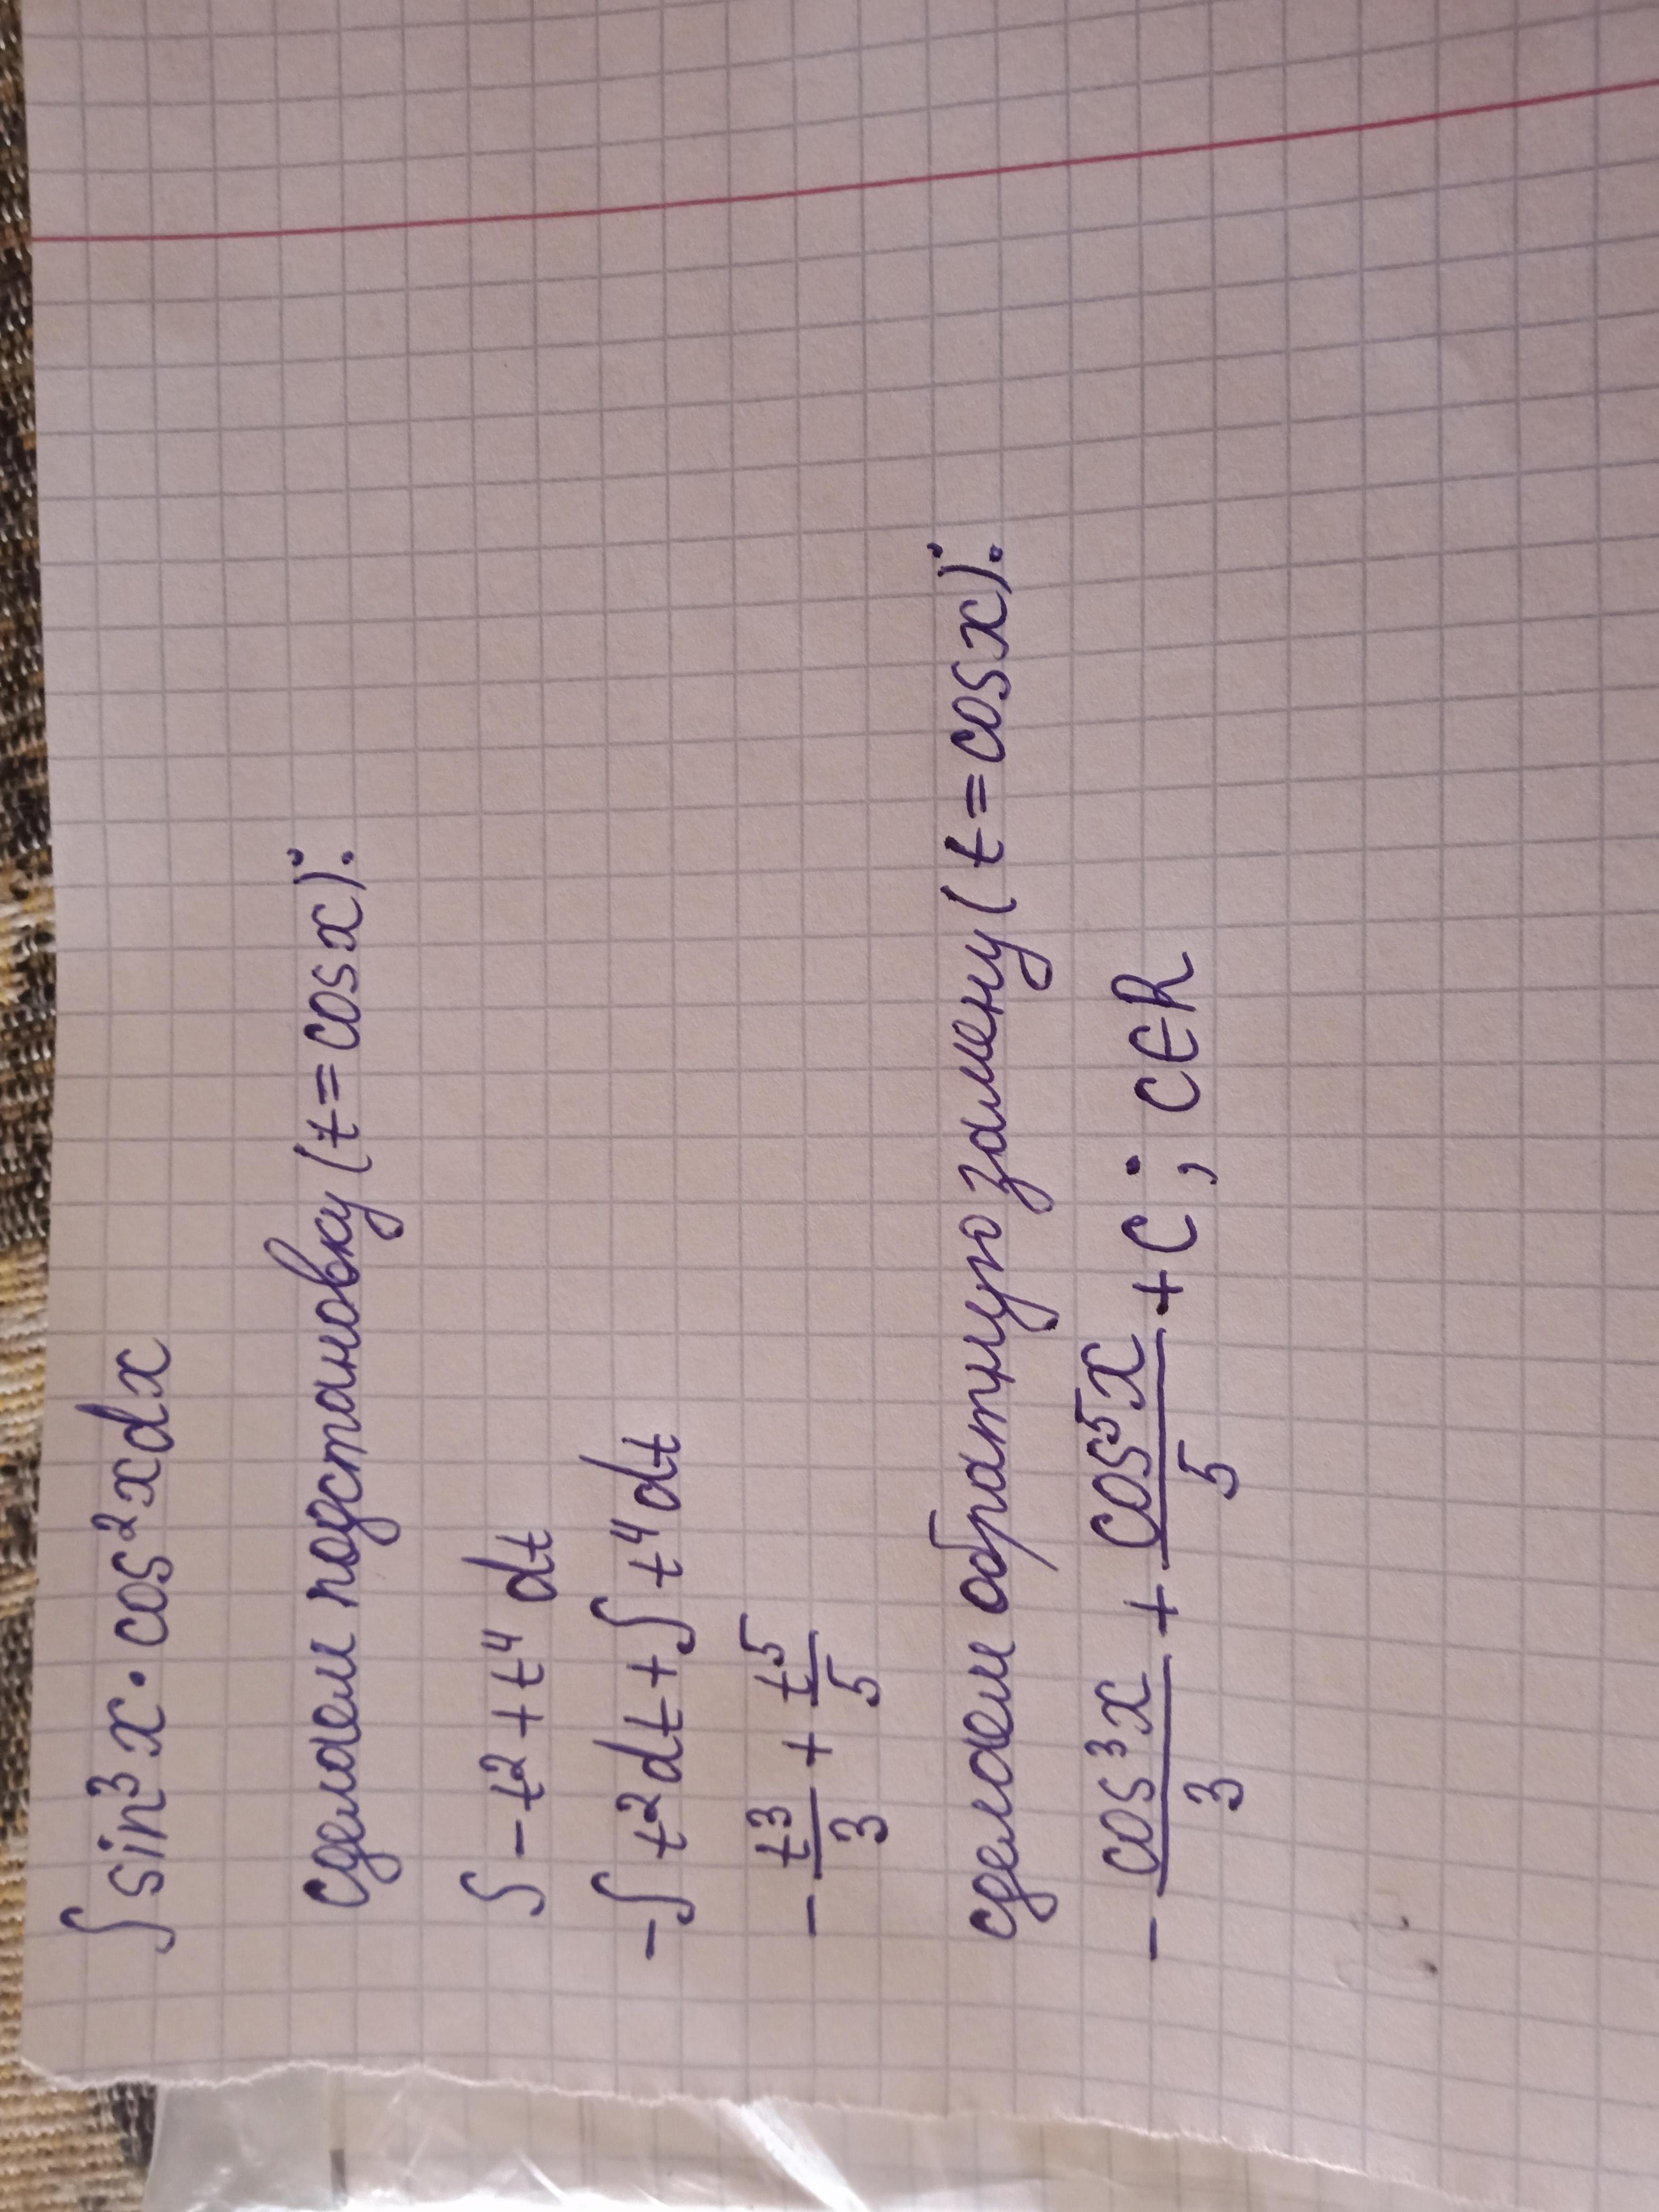 ∫ sin³x · cos²xdx
Сделаем подстановку (t = cosx):
∫ - t² + t⁴ dt
-∫ t² dt + ∫ t⁴ dt
- t³/3 + t⁵/5
сделаем обратную замену (t = cosx):
- cos³x/3 + cos⁵x/5 + C ; C∈R